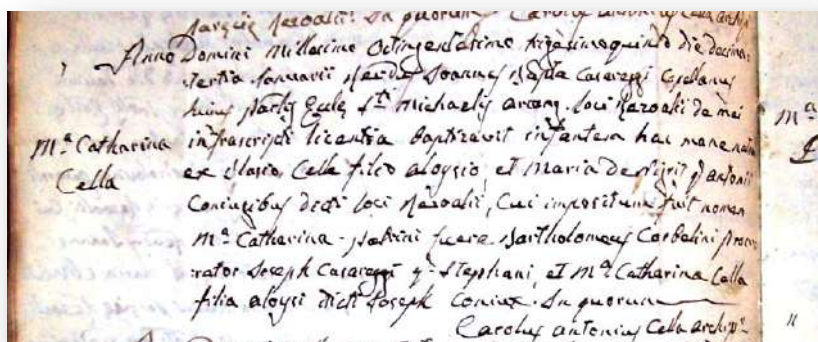 In quorum Carolus Antonius Cella
Anno Domini Millesimo Octingentesimo trigesimoquinto die decima
tertia Januarii Rendus Joannes Bapta Casareggi Capellanus
huius Parlis Ecclę Sti Michaelis Arcang. loci de mei
infrascripti licentia Baptizavit infantem hac mane natam
ex Blasio Cella filio Aloysio, et Maria de q Antonii
Coniugibus dicti loci, Cui impositum fuit nomen
Ma Catharina - Patrini fuere Bartholomeus Corbelini procu
rator Joseph Casareggi q. Stephani, et Ma Catharina Cella
filia Aloysi dicti Joseph Coniux. In quorum
Carolus Antonius Cella Archipr
Ma Catharina
Cella
Ma